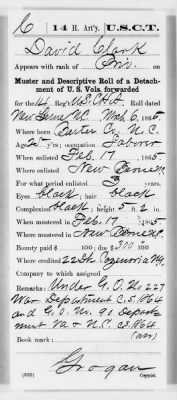 C | 14 H. Art'y. | U.S.C.T.
David Clark
Appears with rank of Priv. on
Muster and Descriptive Roll of a Detachment
of U. S. Vols. forwarded
for the 14 Reg't U.S.C.H.A. Roll dated
New Berne N.C. Mch 6, 1865.
Where born Carter Co, N.C.
Age 25 y'rs; occupation Laborer
When enlisted Feb. 17, 1865
Where enlisted New Berne N.C.
For what period enlisted 3 years.
Eyes black; hair black
Complexion black; height 5 ft. 2 in.
When mustered in Feb. 17, 1865
Where mustered in New Berne N.C.
Bounty paid $ 100; due $ 300 100
Where credited 22
Company to which assigned
Remarks: Under G.O. No 227
War Department C.S. 1864
and G.O. No 90 Department
Va & N.C. CS 1864
Book mark:
Grogan
(639) Copyist.